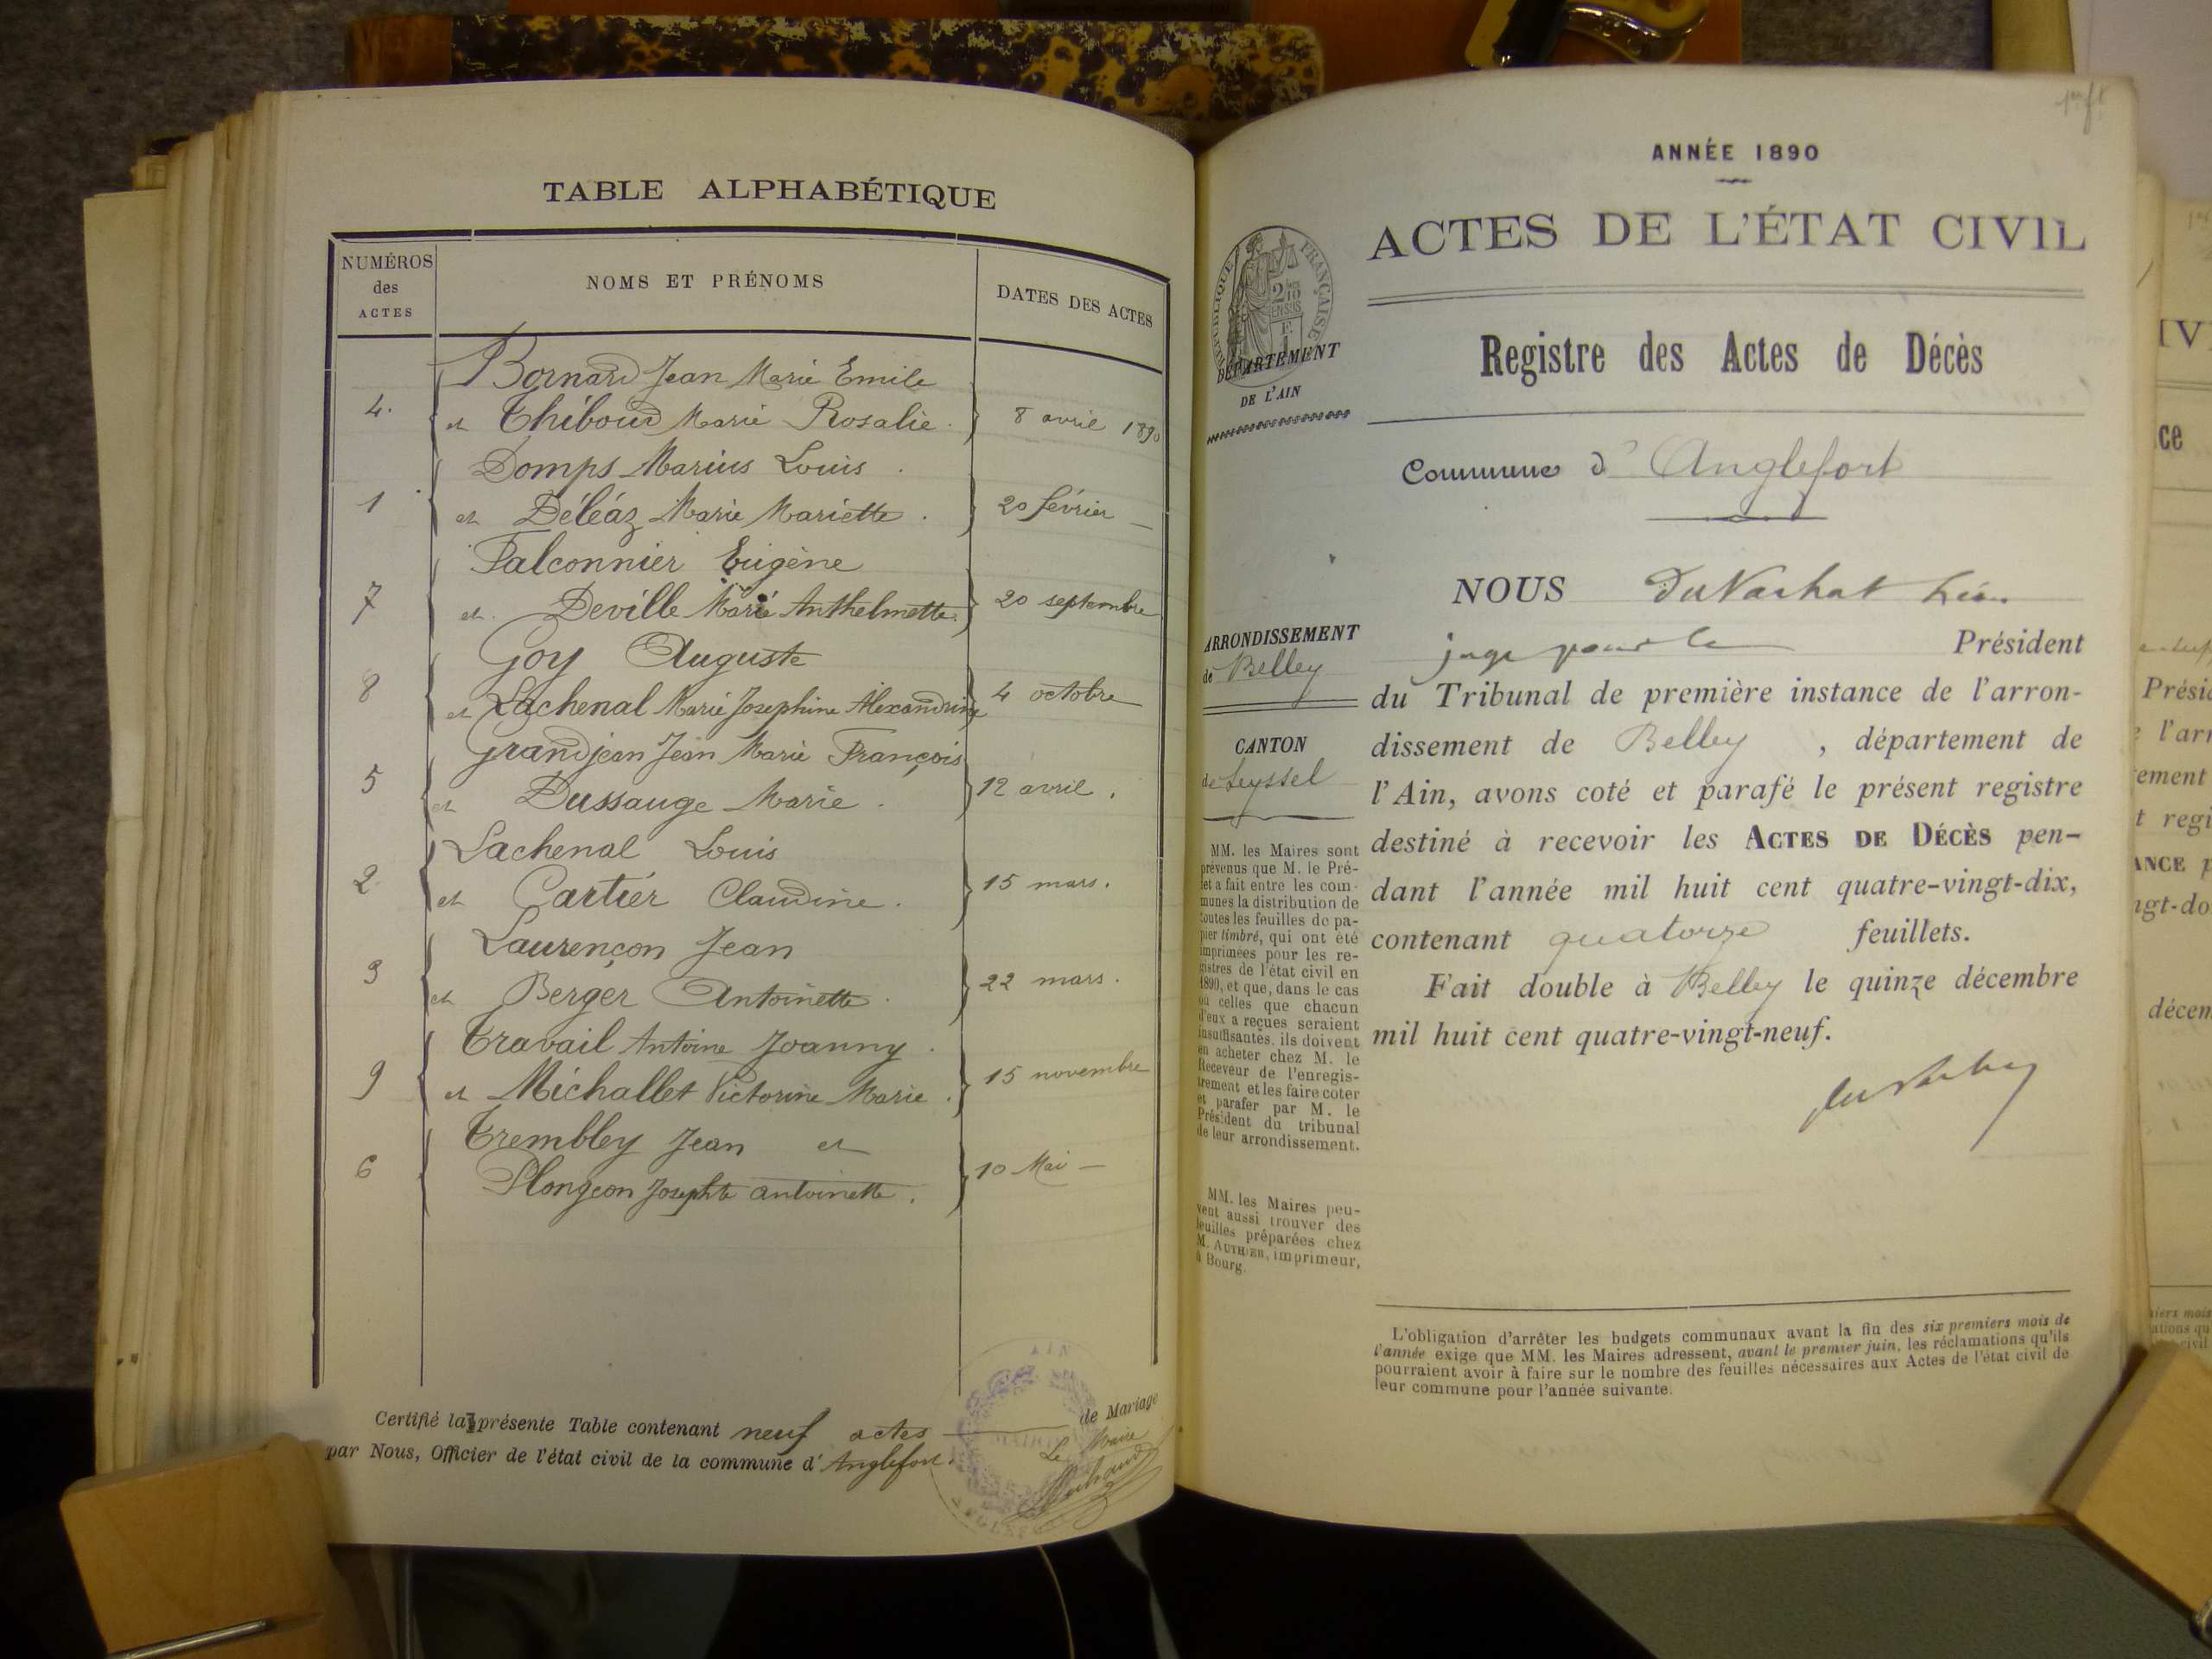 TABLE ALPHABÉTIQUE
NUMÉROS
des
ACTES
NOMS ET PRÉNOMS
DATES DES ACTES
Bornard Jean Marie Emile
4. et Thiboud Marie Rosalie. 8 avril 1890
Domps Marius Louis.
1 et Déléaz Marie Mariette. 20 février —
Falconnier Eugène
7 et Deville Marie Anthelmette. 20 septembre
Goy Auguste
8 et Lachenal Marie Josephine Alexandrine 4 octobre
Grandjean Jean Marie François
5 et Dussauge Marie. 12 avril.
Lachenal Louis
2 et Cartier Claudine. 15 mars.
Laurençon Jean
3 et Berger Antoinette. 22 mars.
Travail Antoine Joanny.
9 et Michallet Victorine Marie. 15 novembre
Trembley Jean et
6 Plongeon Josephte antoinette. 10 Mai —
Certifié la présente Table contenant neuf actes de Mariage
par Nous, Officier de l'état civil de la commune d'Anglefort.
Le Maire
AIN
ANNÉE 1890
ACTES DE L'ÉTAT CIVIL
RÉPUBLIQUE FRANÇAISE
DÉPARTEMENT
DE L'AIN
Registre des Actes de Décès
Commune d'Anglefort
ARRONDISSEMENT
de Belley
CANTON
de Seyssel
MM. les Maires sont
prévenus que M. le Pré-
fet a fait entre les com-
munes la distribution de
toutes les feuilles de pa-
pier timbré, qui ont été
imprimées pour les re-
gistres de l'état civil en
1890, et que, dans le cas
où celles que chacun
d'eux a reçues seraient
insuffisantes, ils doivent
en acheter chez M. le
Receveur de l'enregis-
trement et les faire coter
et parafer par M. le
Président du tribunal
de leur arrondissement.
MM. les Maires peu-
vent aussi trouver des
feuilles préparées chez
M. AUTHIER, imprimeur,
à Bourg.
NOUS DuVachat Léon
juge pour le Président
du Tribunal de première instance de l'arron-
dissement de Belley, département de
l'Ain, avons coté et parafé le présent registre
destiné à recevoir les ACTES DE DÉCÈS pen-
dant l'année mil huit cent quatre-vingt-dix,
contenant quatorze feuillets.
Fait double à Belley le quinze décembre
mil huit cent quatre-vingt-neuf.
L'obligation d'arrêter les budgets communaux avant la fin des six premiers mois de
l'année exige que MM. les Maires adressent, avant le premier juin, les réclamations qu'ils
pourraient avoir à faire sur le nombre des feuilles nécessaires aux Actes de l'état civil de
leur commune pour l'année suivante.